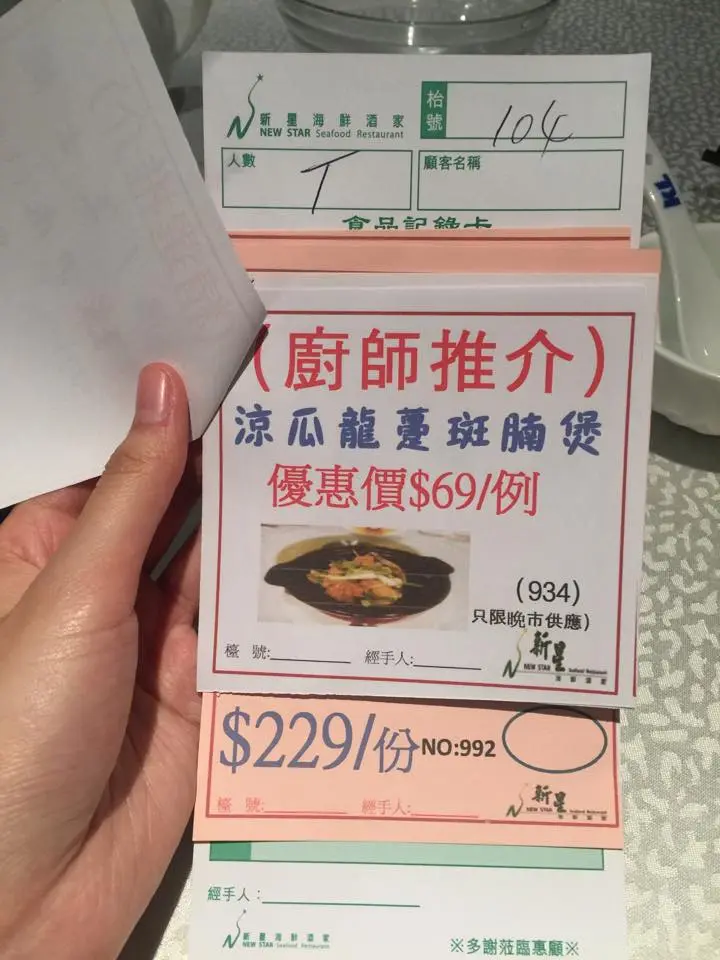 新星海鮮酒家
NEW STAR Seafood Restaurant
枱號
104
人數
T
顧客名稱
食品記錄卡
(廚師推介)
涼瓜龍躉斑腩煲
優惠價$69/例
(934)
只限晚市供應)
檯 號:
經手人:
新星
NEW STAR Seafood Restaurant
海鮮酒家
$229/份
NO:992
檯 號:
經手人:
新星
NEW STAR Seafood Restaurant
海鮮酒家
經手人:
新星海鮮酒家
NEW STAR Seafood Restaurant
※多謝蒞臨惠顧※